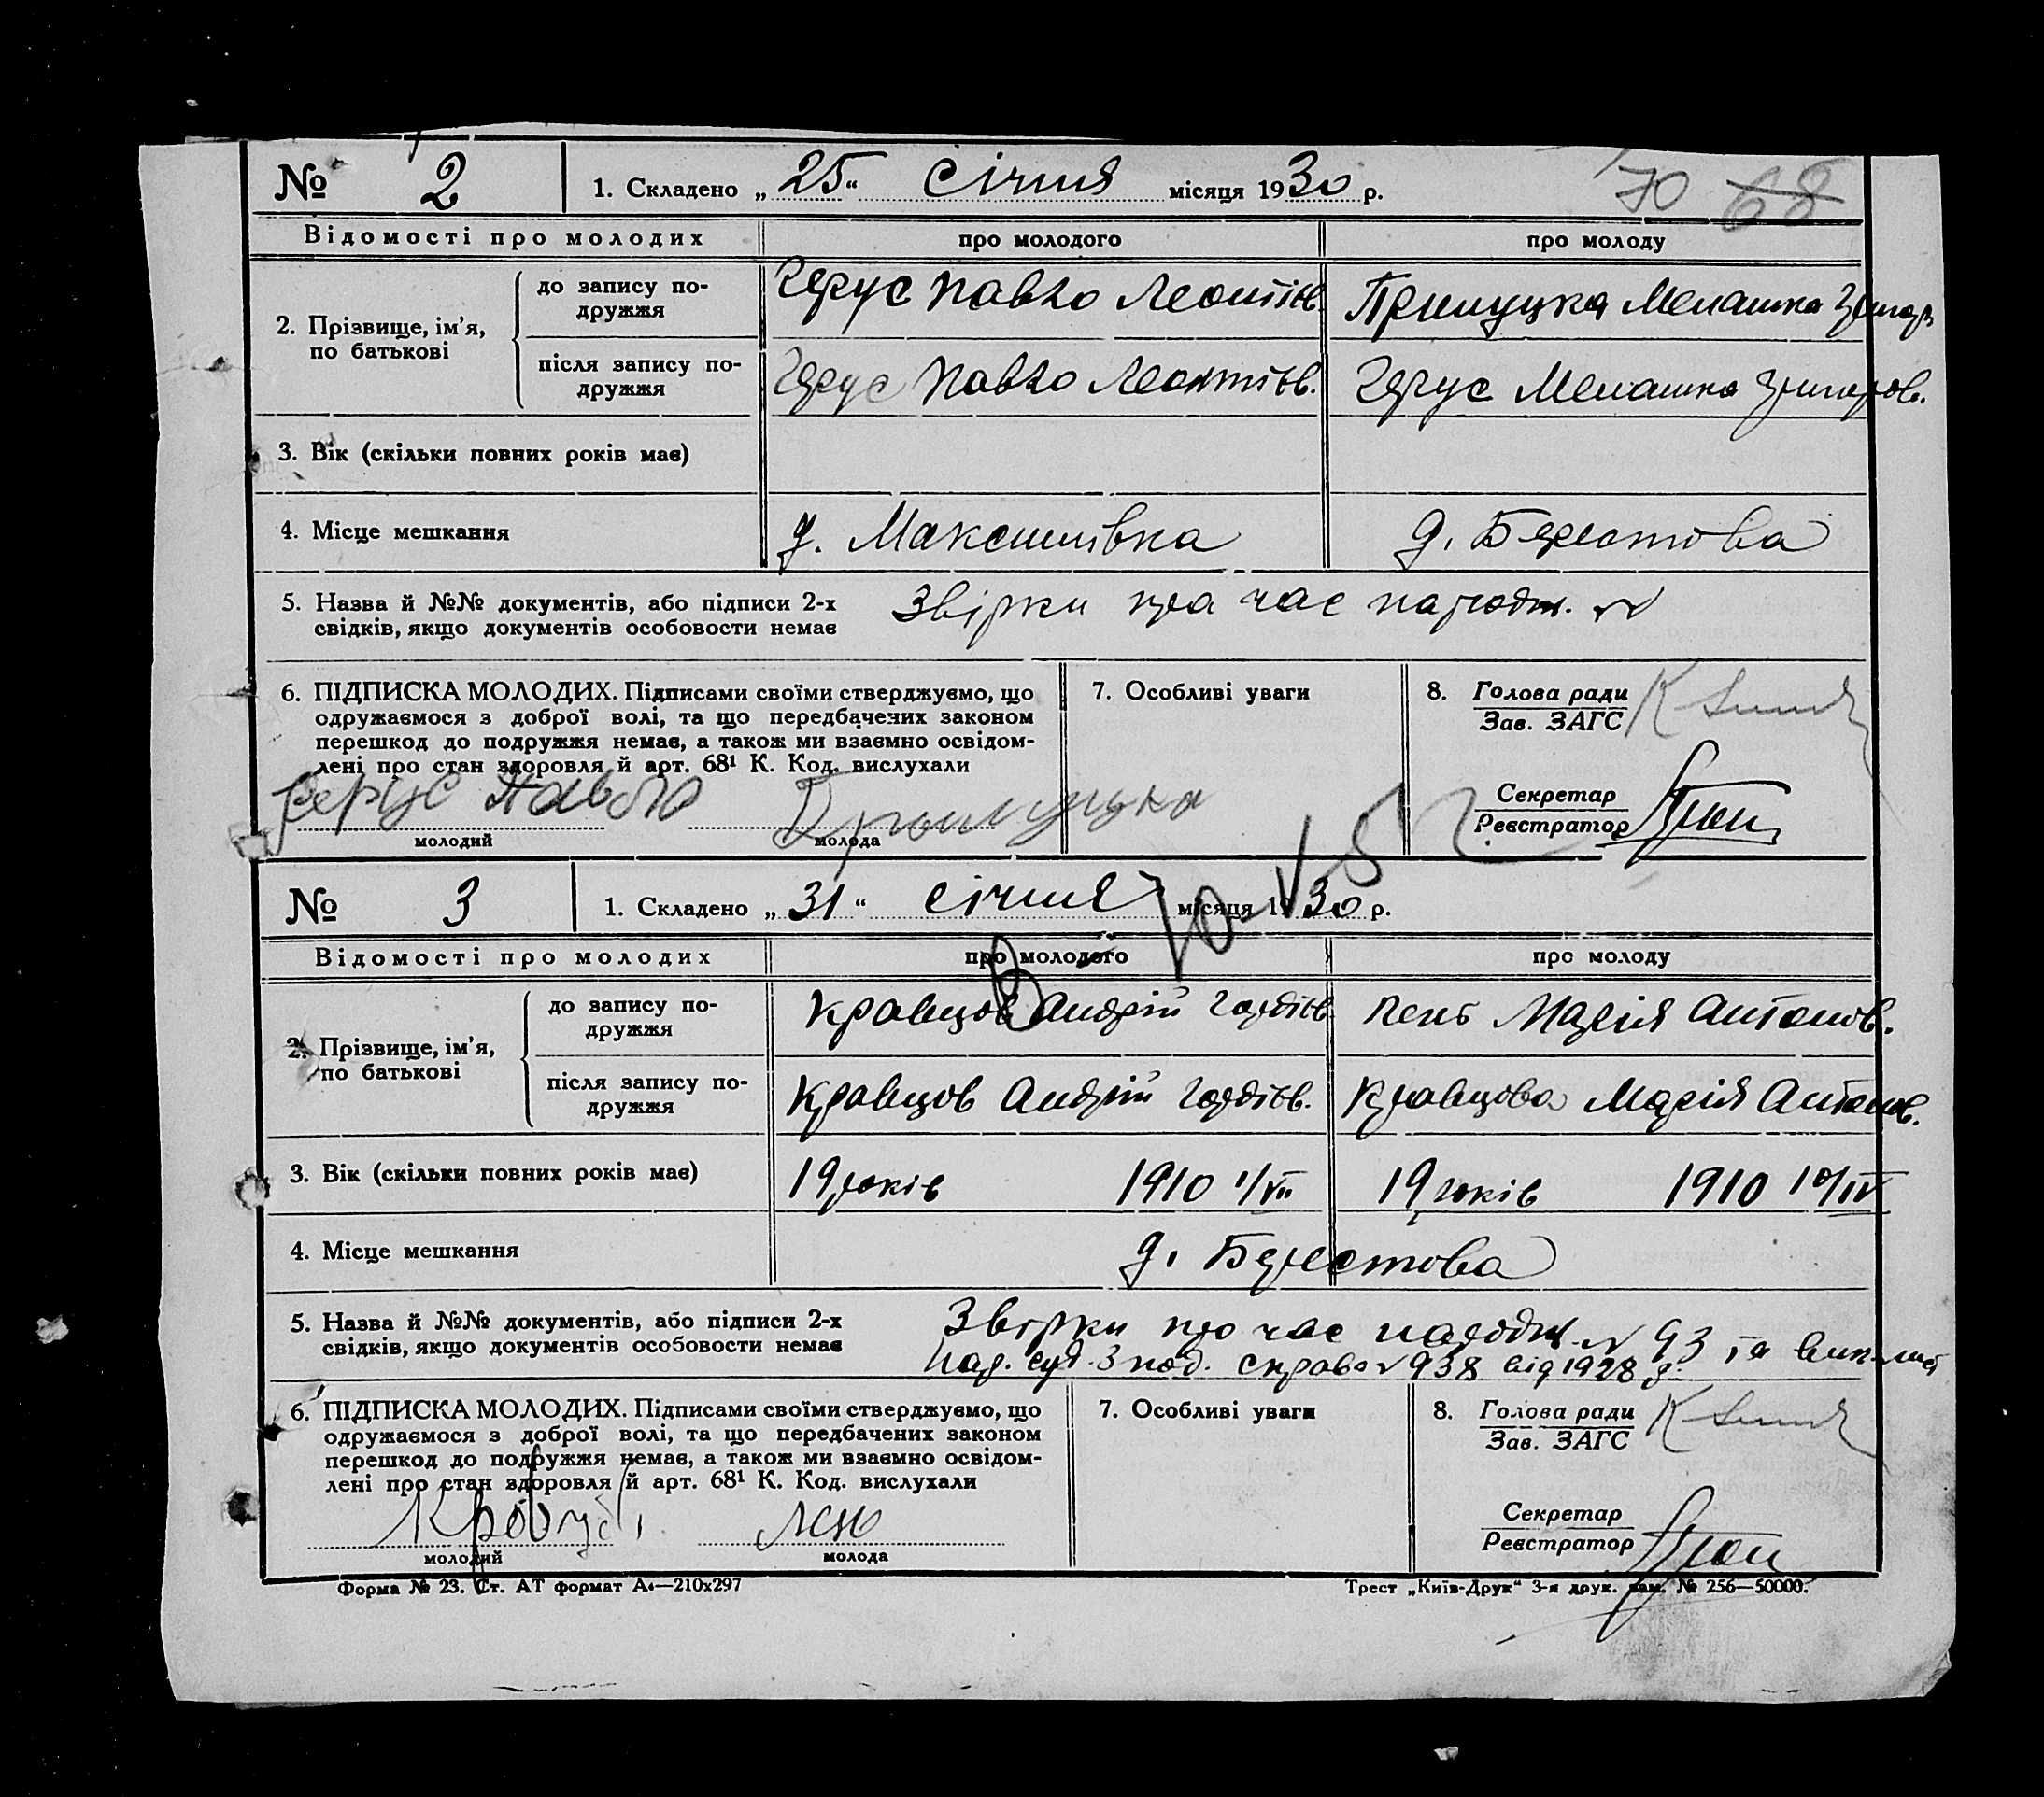 № 2 1. Складено „25“ Січня місяця 1930 р. 70 68
Відомості про молодих про молодого про молоду
2. Прізвище, ім'я, по батькові
до запису по-
дружжя
Герус Павло Леонтіев. Прилуцка Мелашка Григор
після запису по-
дружжя
Герус Павло Леонтієв. Герус Мелашка Григоров.
3. Вік (скільки повних років має)
4. Місце мешкання х. Максимівка д. Берестова
5. Назва й №№ документів, або підписи 2-х
свідків, якщо документів особовости немає
Звірки про час народж. №
6. ПІДПИСКА МОЛОДИХ. Підписами своїми стверджуємо, що
одружаємося з доброї волі, та що передбачених законом
перешкод до подружжя немає, а також ми взаємно освідом-
лені про стан здоровля й арт. 68¹ К. Код. вислухали
Герус Павло Прилуцка
молодий молода
7. Особливі уваги
8. Голова ради
Зав. ЗАГС
Секретар
Реєстратор
№ 3 1. Складено „31“ січня місяця 1930 р.
Відомості про молодих про молодого про молоду
2. Прізвище, ім'я,
по батькові
до запису по-
дружжя
Кравцов Андрій Гордієв. Лень Марія Антонов.
після запису по-
дружжя
Кравцов Андрій Гордієв. Кравцова Марія Антонов.
3. Вік (скільки повних років має) 19 років 1910 1/VII 19 років 1910 10/IV
4. Місце мешкання д. Берестова
5. Назва й №№ документів, або підписи 2-х
свідків, якщо документів особовости немає
Звірки про час народж. № 93 та вик. лист
Нар. суд. 3 справа № 938 від 1928 р.
6. ПІДПИСКА МОЛОДИХ. Підписами своїми стверджуємо, що
одружаємося з доброї волі, та що передбачених законом
перешкод до подружжя немає, а також ми взаємно освідом-
лені про стан здоровля й арт. 68¹ К. Код. вислухали
Лень
молодий молода
7. Особливі уваги
8. Голова ради
Зав. ЗАГС
Секретар
Реєстратор
Форма № 23. Ст. АТ формат А₄—210х297 Трест „Київ-Друк“ 3-я друк. зам. № 256—50000.